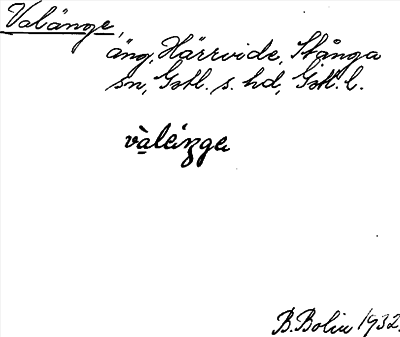 Valänge,
äng, Härrvide, Stånga
sn, Gotl. s. hd, Gotl. l.
B. Bolin 1932.